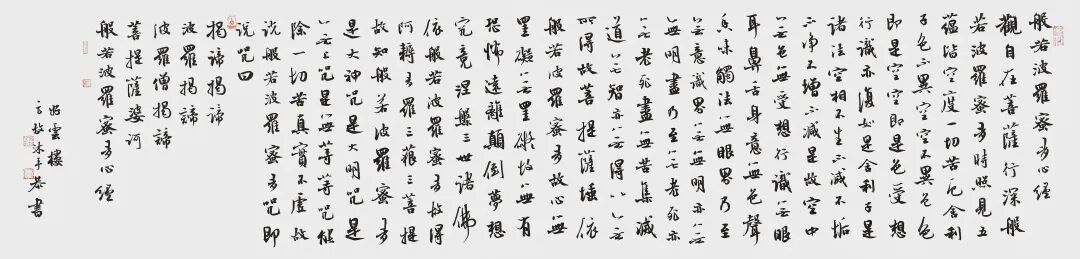 般若波羅蜜多心經
觀自在菩薩行深般
若波羅蜜多時照見五
蘊皆空度一切苦厄舍利
子色不異空空不異色色
即是空空即是色受想
行識亦復如是舍利子是
諸法空相不生不滅不垢
不淨不增不減是故空中
無色無受想行識無眼
耳鼻舌身意無色聲
香味觸法無眼界乃至
無意識界無無明亦無
無明盡乃至無老死亦
無老死盡無苦集滅
道無智亦無得以無
所得故菩提薩埵依
般若波羅蜜多故心無
罣礙無罣礙故無有
恐怖遠離顛倒夢想
究竟涅槃三世諸佛
依般若波羅蜜多故得
阿耨多羅三藐三菩提
故知般若波羅蜜多
是大神咒是大明咒是
無上咒是無等等咒能
除一切苦真實不虛故
說般若波羅蜜多咒即
說咒曰
揭諦揭諦
波羅揭諦
波羅僧揭諦
菩提薩婆訶
般若波羅蜜多心經
雲樓
沐手恭書